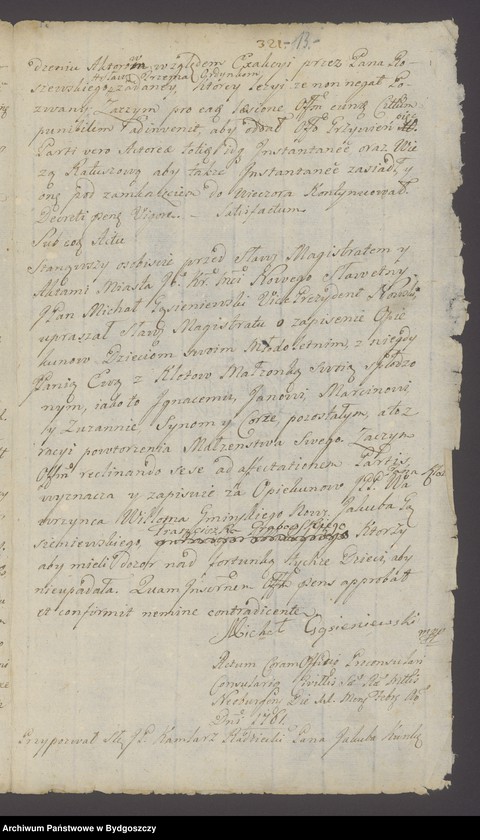 321.-13.-
dzeniu Aktorow względem Exakcyi przez Pana Ro-
szewskiego zadaney, ktorey lezyi że non negat Po-
zwany, Zaczym pro eaq læsione Offm eunq
punibilem adinvenit, aby oddał Grzywien
Parti vero Actorea totidq Instantaneè oraz Wie
zą Ratuszową aby także Instantaneè zasiadł, y
onę pod zamknięciem do Wieczora Kontynuował
Decreti psens Vigore. - Satisfactum.
Sub eoq Actu
Stanąwszy osobiscie przed Sław: Magistratem y
Aktami Miasta J. Kr. Mci Nowego Sławetny
JPan Michał Gąsieniewski Vice Prezydent Nowski
upraszał Sław: Magistratu o zapisenie Opie
kunow Dzieciom swoim Młodoletnim, z niegdy
Panią Ewą z Małzonką Swoią spłodzo
nym, iako to Jgnacemu, Janowi, Marcinowi
ty Zuzannie Synom y Corce, pozostałym, a to z
racyi powtorzenia Małzenstwa Swego. Zaczym
Offm reclinando sese ad affectationem Partis
wyznacza y zapisuie za Opiekunow PP. Wa
wrzynca Gminskiego Now: Jakuba Gą
szeniewskiego, Franciszka Grabowskiego Ktorzy
aby mieli dozor nad fortunką tychże Dzieci, aby
nieupadała. Quam Inscrnem Offm psens approbat
et confirmit nemine contradicente
Michał Gąsieniewski
mpp
Actum Coram Officio Proconsulari
Consulariq Civilis
Neoburgen Die Mens Febr:
Dni 1761.
Przypozwał JP. Kamlarz Radziecki Pana Jakuba
Archiwum Państwowe w Bydgoszczy